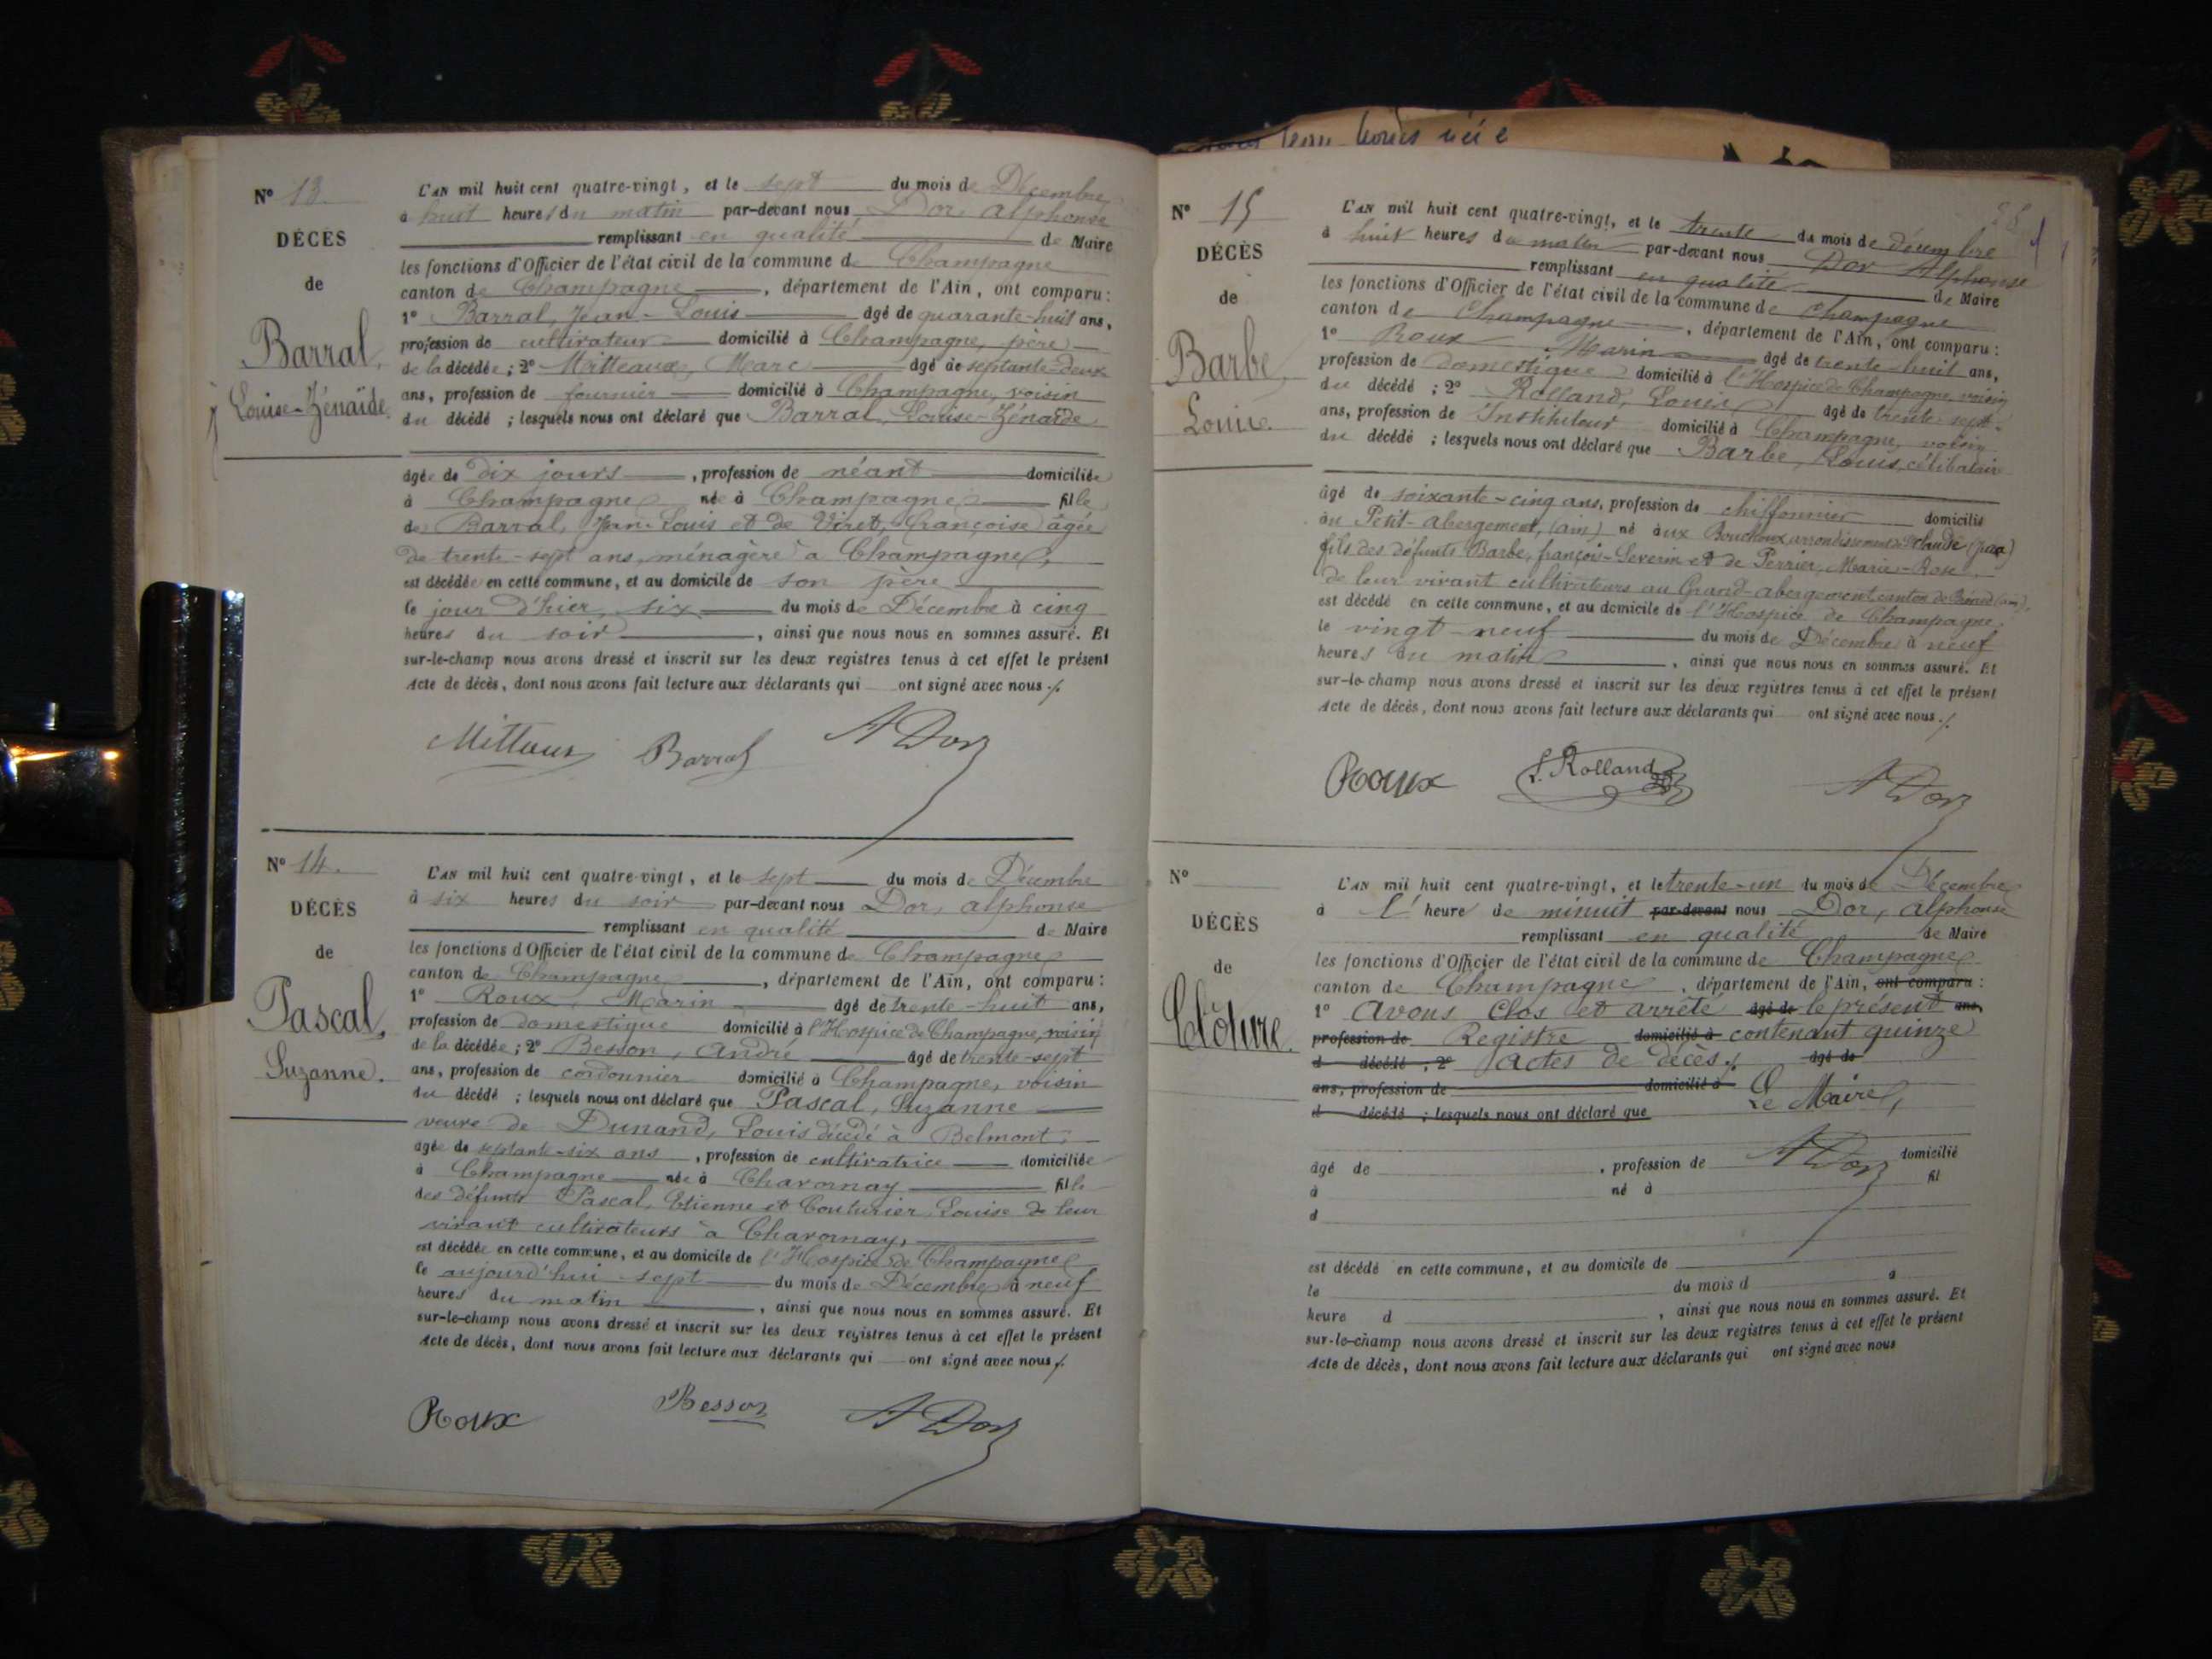 N° 13.
DÉCÈS
de
Barral,
Louise-Zénaïde.
L'AN mil huit cent quatre-vingt, et le sept du mois de Décembre
à huit heures du matin par-devant nous Dor, alphonse
remplissant en qualité de Maire
les fonctions d'Officier de l'état civil de la commune de Champagne
canton de Champagne, département de l'Ain, ont comparu :
1° Barral, Jean-Louis âgé de quarante-huit ans,
profession de cultivateur domicilié à Champagne, père
de la décédée ; 2° Mitteaux, Marc âgé de septante-deux
ans, profession de fournier domicilié à Champagne, voisin
du décédé ; lesquels nous ont déclaré que Barral, Louise-Zénaïde
âgée de dix jours, profession de néant domiciliée
à Champagne née à Champagne fille
de Barral, Jean-Louis et de Viret, Françoise âgée
de trente-sept ans, ménagère à Champagne,
est décédée en cette commune, et au domicile de son père
le jour d'hier, six du mois de Décembre à cinq
heures du soir, ainsi que nous nous en sommes assuré. Et
sur-le-champ nous avons dressé et inscrit sur les deux registres tenus à cet effet le présent
Acte de décès, dont nous avons fait lecture aux déclarants qui ont signé avec nous ./.
Mitteaux Barral A Dor
N° 14.
DÉCÈS
de
Pascal,
Suzanne.
L'AN mil huit cent quatre-vingt, et le sept du mois de Décembre
à six heures du soir par-devant nous Dor, alphonse
remplissant en qualité de Maire
les fonctions d'Officier de l'état civil de la commune de Champagne
canton de Champagne, département de l'Ain, ont comparu :
1° Roux, Marin âgé de trente-huit ans,
profession de domestique domicilié à l'Hospice de Champagne, voisin
de la décédée ; 2° Besson, André âgé de trente-sept
ans, profession de cordonnier domicilié à Champagne, voisin
du décédé ; lesquels nous ont déclaré que Pascal, Suzanne
veuve de Dunand, Louis décédé à Belmont,
âgée de septante-six ans, profession de cultivatrice domiciliée
à Champagne née à Chavornay fille
des défunts Pascal, Etienne et Couturier, Louise de leur
vivant cultivateurs à Chavornay,
est décédée en cette commune, et au domicile de l'Hospice de Champagne
le aujourd'hui sept du mois de Décembre à neuf
heures du matin, ainsi que nous nous en sommes assuré. Et
sur-le-champ nous avons dressé et inscrit sur les deux registres tenus à cet effet le présent
Acte de décès, dont nous avons fait lecture aux déclarants qui ont signé avec nous ./.
Roux Besson A Dor
N° 15
DÉCÈS
de
Barbe,
Louis.
L'AN mil huit cent quatre-vingt, et le trente du mois de décembre
à huit heures du matin par-devant nous Dor Alphonse
remplissant en qualité de Maire
les fonctions d'Officier de l'état civil de la commune de Champagne
canton de Champagne, département de l'Ain, ont comparu :
1° Roux Marin âgé de trente-huit ans,
profession de domestique domicilié à l'Hospice de Champagne, voisin
du décédé ; 2° Rolland, Louis âgé de trente-sept
ans, profession de Instituteur domicilié à Champagne, voisin
du décédé ; lesquels nous ont déclaré que Barbe, Louis, célibataire
âgé de soixante-cinq ans, profession de chiffonnier domicilié
au Petit-abergement, (ain) né aux Bouchoux arrondissement de St Claude (jura)
fils des défunts Barbe, françois-Severin et de Perrier, Marie-Rose,
de leur vivant cultivateurs au Grand-abergement canton de Brénod (ain),
est décédé en cette commune, et au domicile de l'Hospice de Champagne
le vingt-neuf du mois de Décembre à neuf
heures du matin, ainsi que nous nous en sommes assuré. Et
sur-le-champ nous avons dressé et inscrit sur les deux registres tenus à cet effet le présent
Acte de décès, dont nous avons fait lecture aux déclarants qui ont signé avec nous ./.
Roux L. Rolland A Dor
N°
DÉCÈS
de
Clôture.
L'AN mil huit cent quatre-vingt, et le trente-un du mois de Décembre
à l' heure de minuit par-devant nous Dor, alphonse
remplissant en qualité de Maire
les fonctions d'Officier de l'état civil de la commune de Champagne
canton de Champagne, département de l'Ain, ont comparu :
1° avons clos et arrêté âgé de le présent ans,
profession de Registre domicilié à contenant quinze
d décédé ; 2° actes de décès ./. âgé de
ans, profession de domicilié à Le Maire,
d décédé ; lesquels nous ont déclaré que
A Dor
âgé de , profession de domicilié
à né à fil
d
est décédé en cette commune, et au domicile de
le du mois d à
heure d , ainsi que nous nous en sommes assuré. Et
sur-le-champ nous avons dressé et inscrit sur les deux registres tenus à cet effet le présent
Acte de décès, dont nous avons fait lecture aux déclarants qui ont signé avec nous